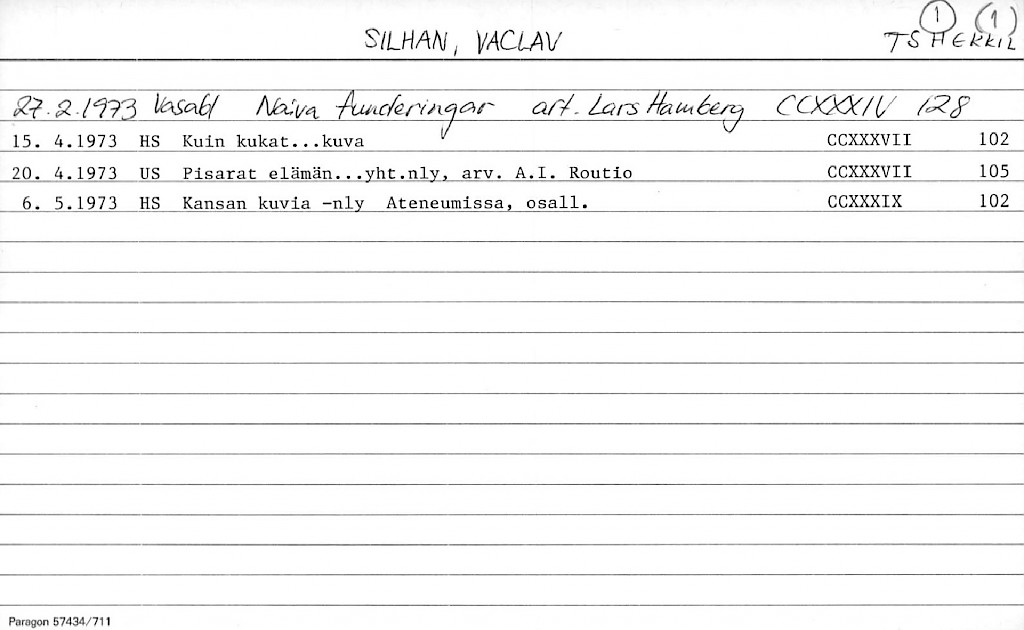 1 (1)
SILHAN, VACLAV TSHEKKIL
27.2.1973 Vasabl Naiva funderingar art. Lars Hamberg CCXXXIV 128
15. 4.1973 HS Kuin kukat...kuva CCXXXVII 102
20. 4.1973 US Pisarat elämän...yht.nly, arv. A.I. Routio CCXXXVII 105
6. 5.1973 HS Kansan kuvia -nly Ateneumissa, osall. CCXXXIX 102
Paragon 57434/711